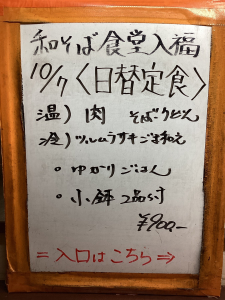 和そば食堂入福
10/7〈日替定食〉
温）肉 そばうどん
冷）ツルムラサキごま和え
・ゆかりごはん
・小鉢2品付
¥900-
＝入口はこちら⇒